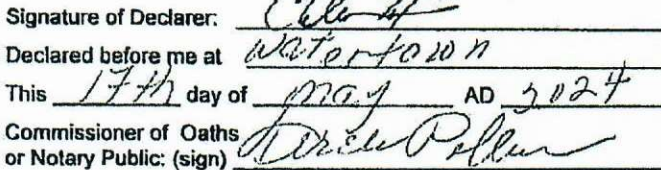 Signature of Declarer:
Declared before me at Watertown
This 17th day of May AD 2024
Commissioner of Oaths
or Notary Public: (sign)